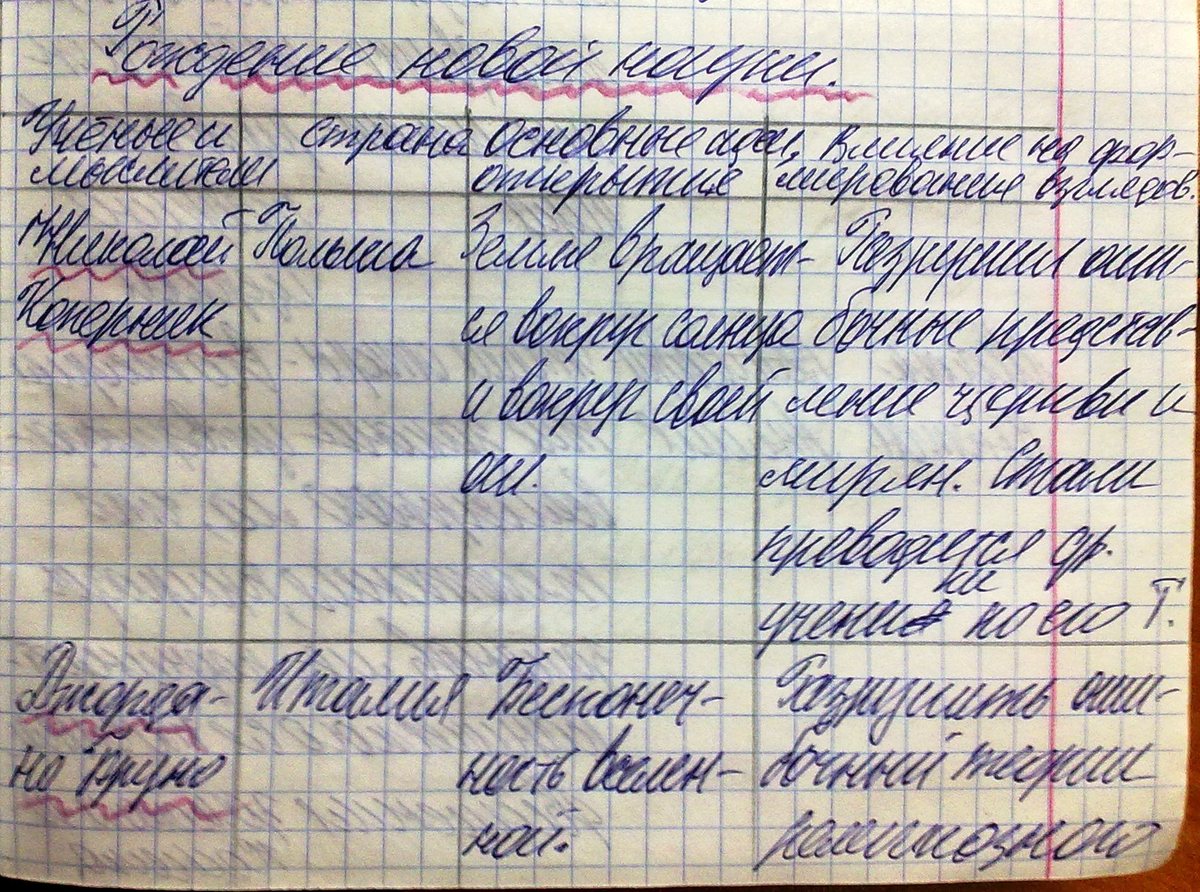 Рождение новой науки.
Учёные и мыслители
страна
основные идеи, открытия
Влияние на фор-
мирование взглядов.
Николай
Коперник
Польша
Земля вращает-
ся вокруг солнца
и вокруг своей
оси.
Разрушил оши-
бочные представ-
ление церкви и
мирян. Стали
проводится др.
учения по его Т.
Джорда-
но Бруно
Италия
Бесконеч-
ность вселен-
ной.
Разрушить оши-
бочный теории
религиозного